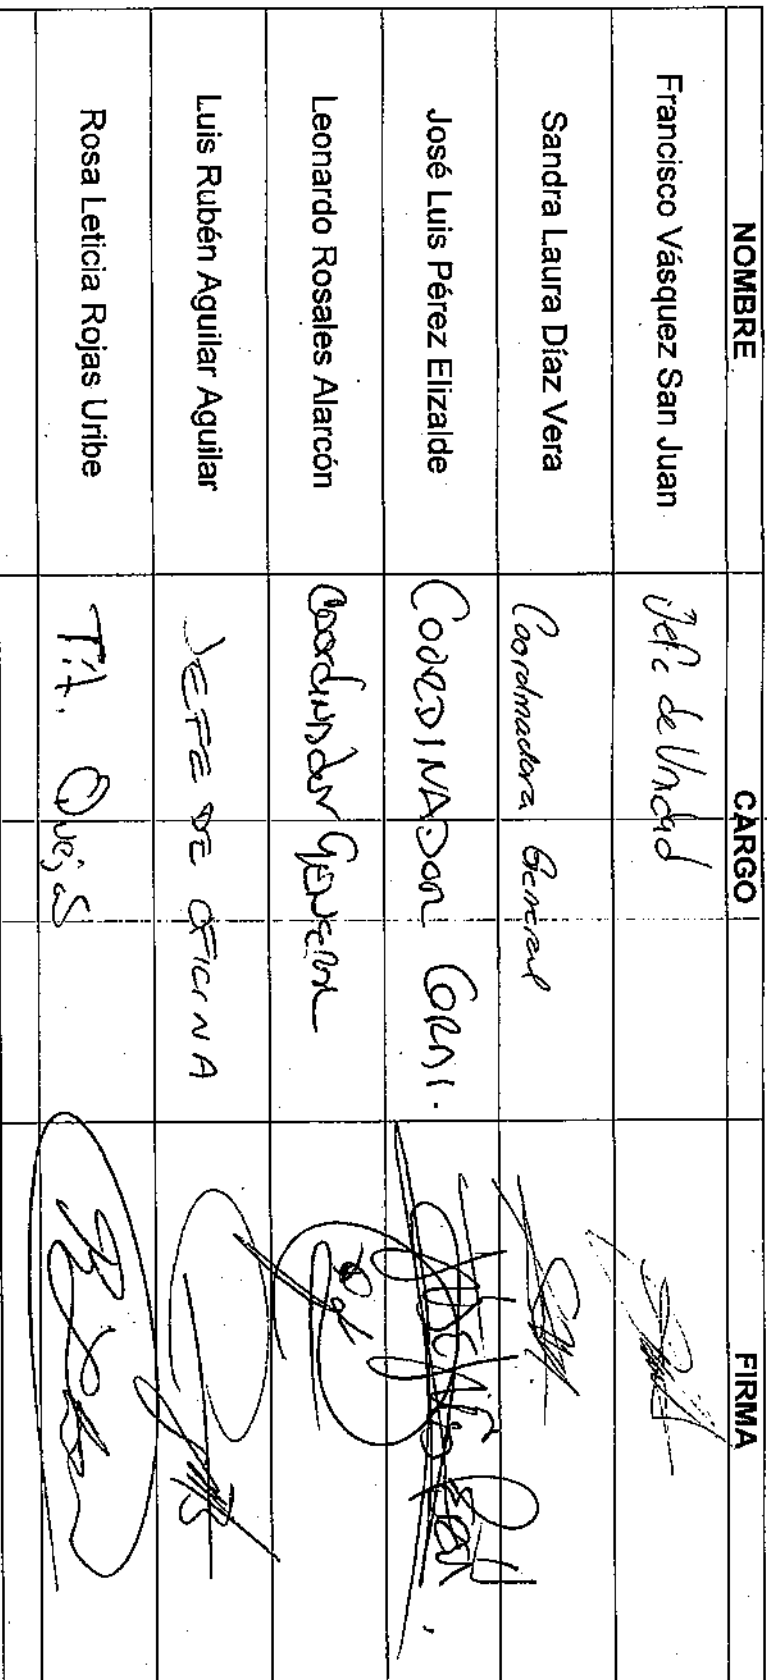 NOMBRE CARGO FIRMA
Francisco Vásquez San Juan Jefe de Unidad
Sandra Laura Díaz Vera Coordinadora General
José Luis Pérez Elizalde COORDINADOR GRAL.
Leonardo Rosales Alarcón Coordinador General
Luis Rubén Aguilar Aguilar JEFE DE OFICINA
Rosa Leticia Rojas Uribe